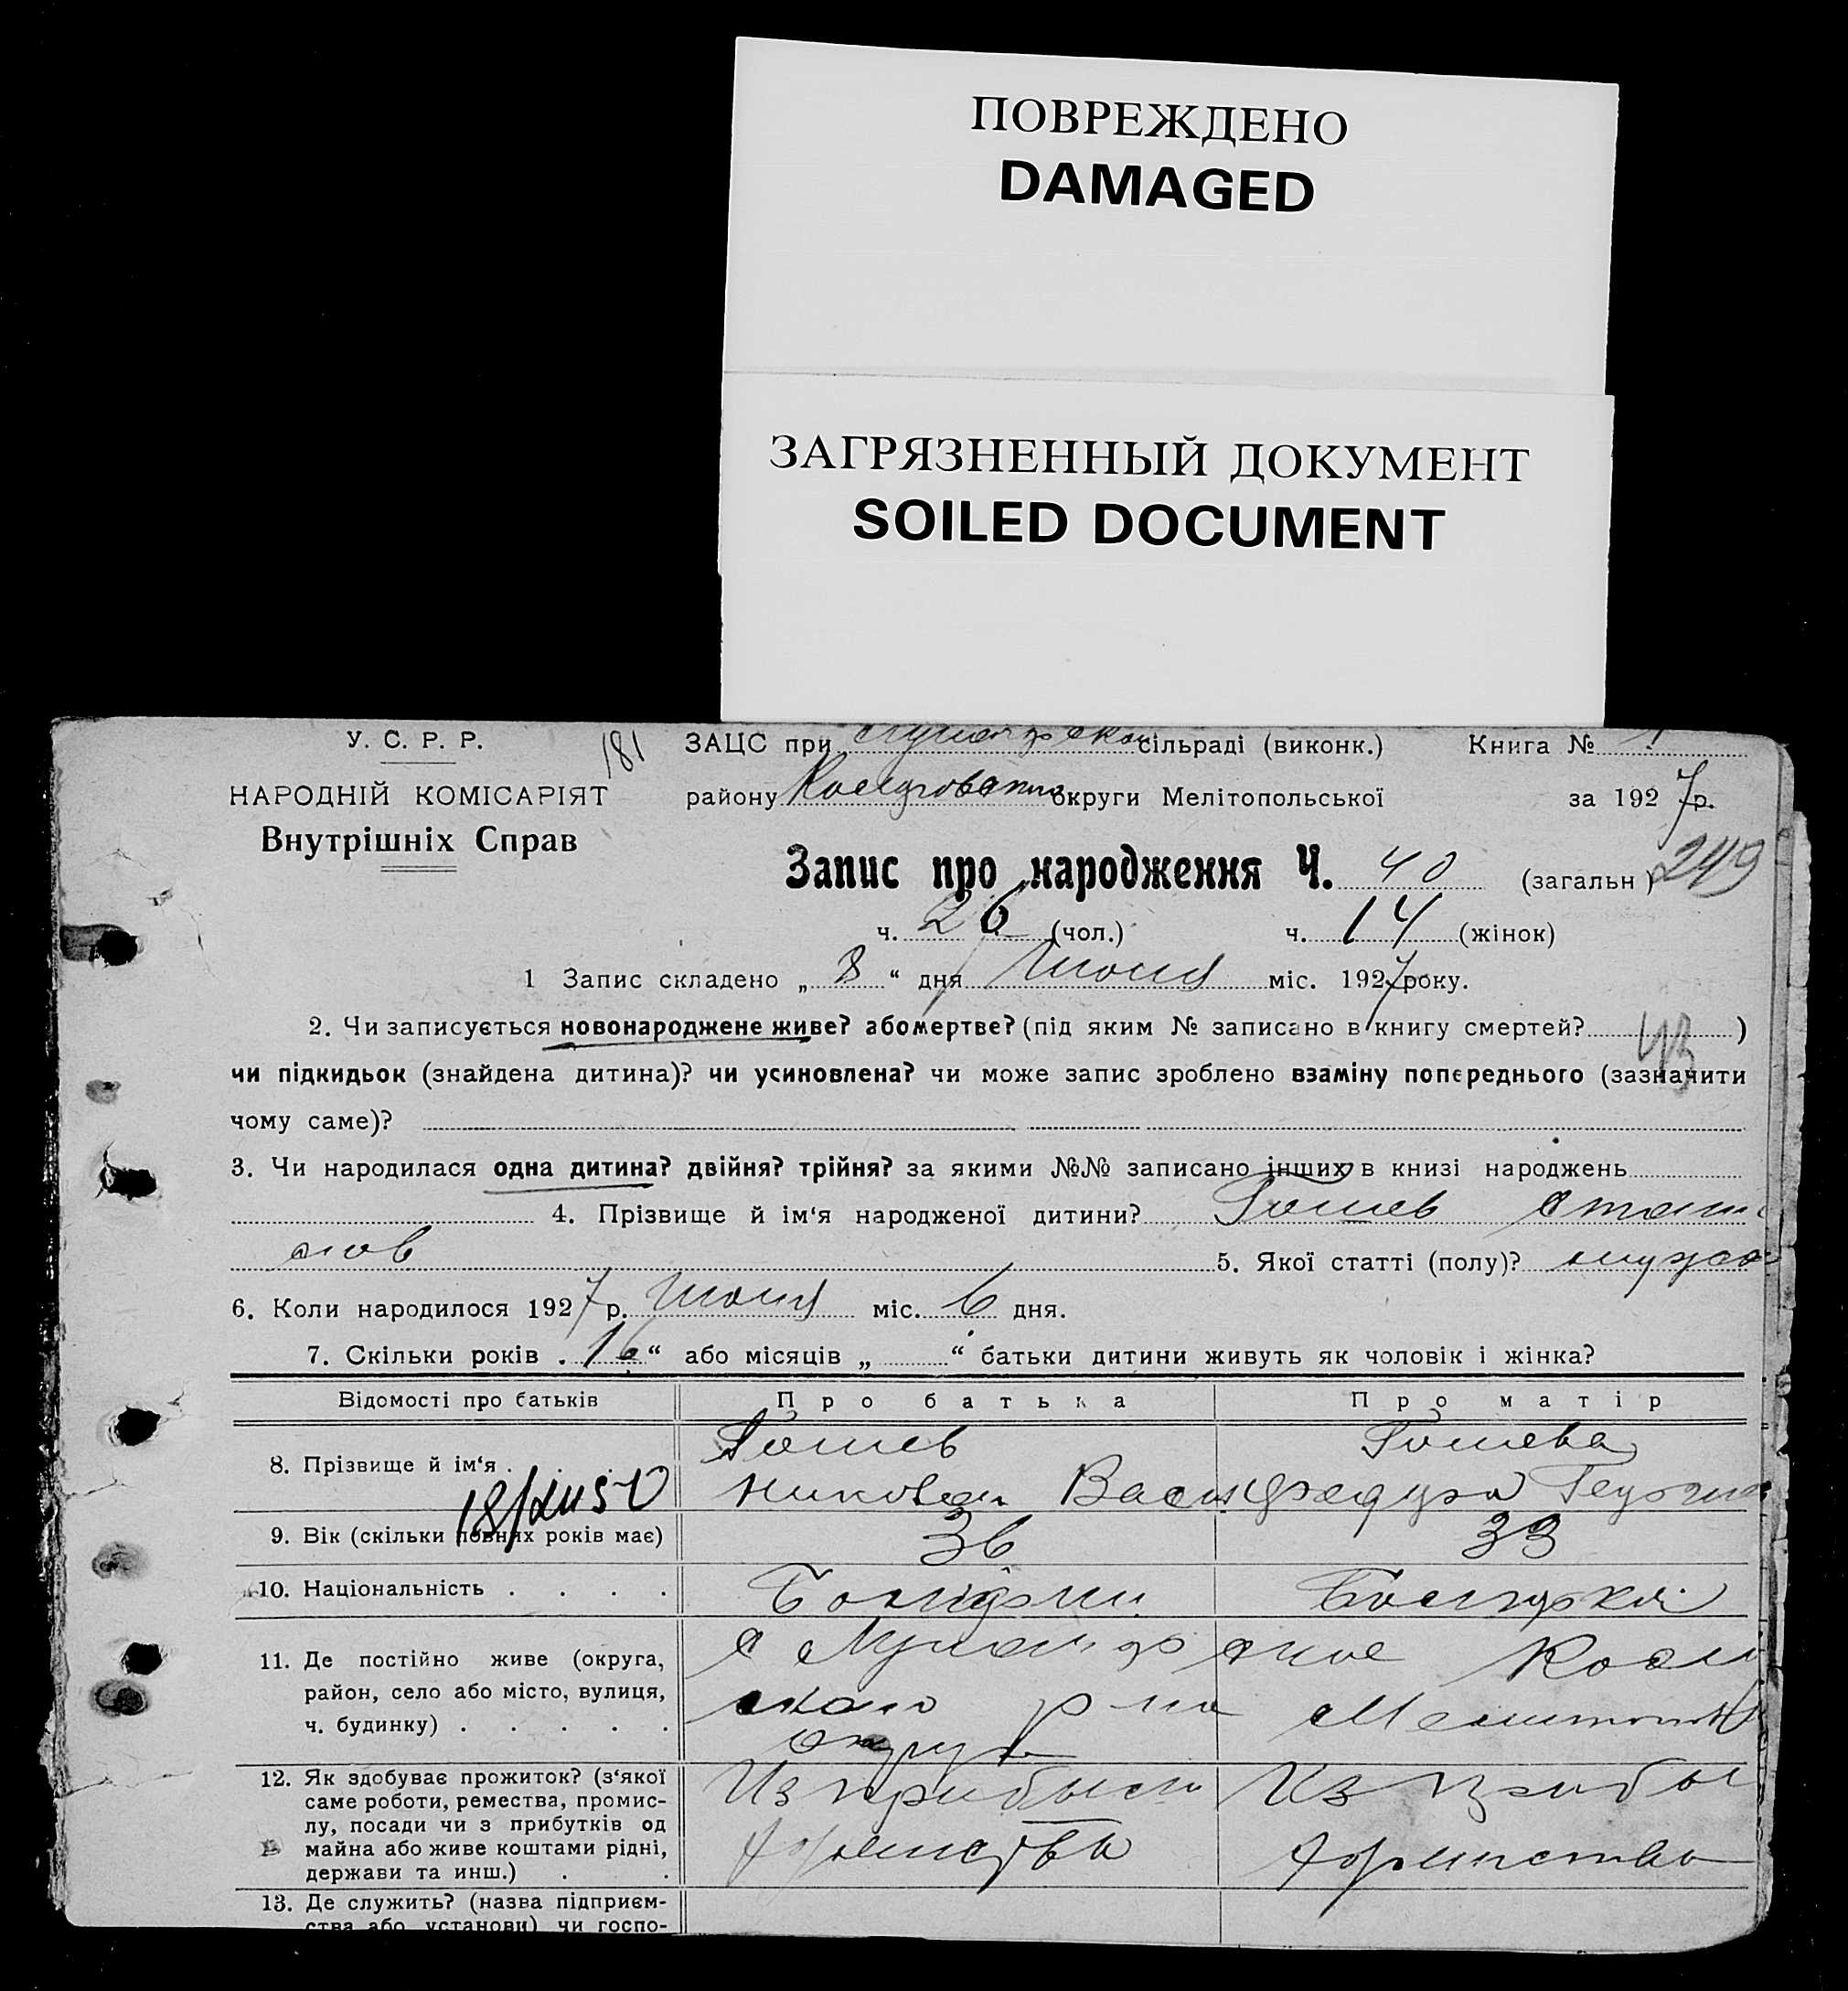 ПОВРЕЖДЕНО
DAMAGED
ЗАГРЯЗНЕННЫЙ ДОКУМЕНТ
SOILED DOCUMENT
У. С. Р. Р.
181
ЗАЦС при сільраді (виконк.) Книга № 1
НАРОДНІЙ КОМІСАРІЯТ
району округи Мелітопольської за 1927 р.
Внутрішніх Справ
Запис про народження Ч. 40 (загальн) 249
ч. 26 (чол.) ч. 14 (жінок)
1 Запис складено „ 8 “ дня Июня міс. 1927 року.
2. Чи записується новонароджене живе? або мертве? (під яким № записано в книгу смертей? )
чи підкидьок (знайдена дитина)? чи усиновлена? чи може запис зроблено взаміну попереднього (зазначити
чому саме)?
3. Чи народилася одна дитина? двійня? трійня? за якими №№ записано інших в книзі народжень
4. Прізвище й ім‘я народженої дитини? Гошев Стани
слов 5. Якої статті (полу)? мужс
6. Коли народилося 1927 р. Июня міс. 6 дня.
7. Скільки років 16 “ або місяців „ “ батьки дитини живуть як чоловік і жінка?
Відомості про батьків Про батька Про матір
8. Прізвище й ім‘я . Гошев Гошева
Николай Васил Георги
9. Вік (скільки повних років має) 36 33
10. Національність . . . . Болгарин Болгарка
11. Де постійно живе (округа,
район, село або місто, вулиця,
ч. будинку) . . . . .
ского р-на Мелитопол
округа
12. Як здобуває прожиток? (з‘якої
саме роботи, ремества, промис-
лу, посади чи з прибутків од
майна або живе коштами рідні,
держави та инш.) . .
Из прибыли Из прибыл
13. Де служить? (назва підприєм-
ства або установи) чи госпо-